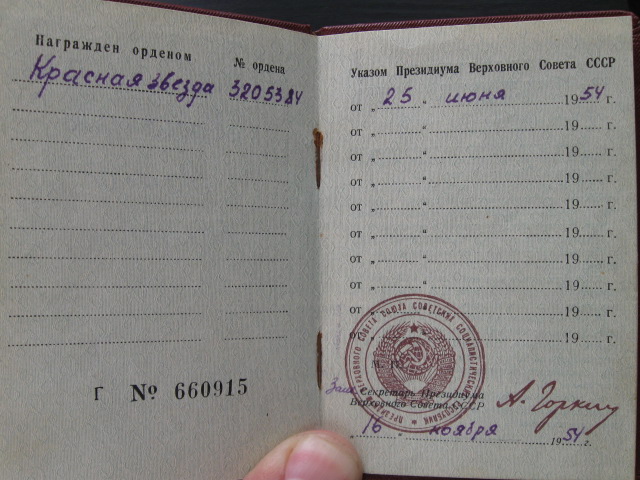 Награжден орденом
№ ордена
Красная звезда 3205384
Г № 660915
Указом Президиума Верховного Совета СССР
от „ 25 “ июня 1954 г.
от „ “ 19 г.
от „ “ 19 г.
от „ “ 19 г.
от „ “ 19 г.
от „ “ 19 г.
от „ “ 19 г.
от „ “ 19 г.
от „ “ 19 г.
от „ 19 г.
Зам. Секретарь Президиума
Верховного Совета СССР
А. Горкин
„ 16 “ ноября 1954 г.
ПРЕЗИДИУМ ВЕРХОВНОГО СОВЕТА СОЮЗА СОВЕТСКИХ СОЦИАЛИСТИЧЕСКИХ РЕСПУБЛИК